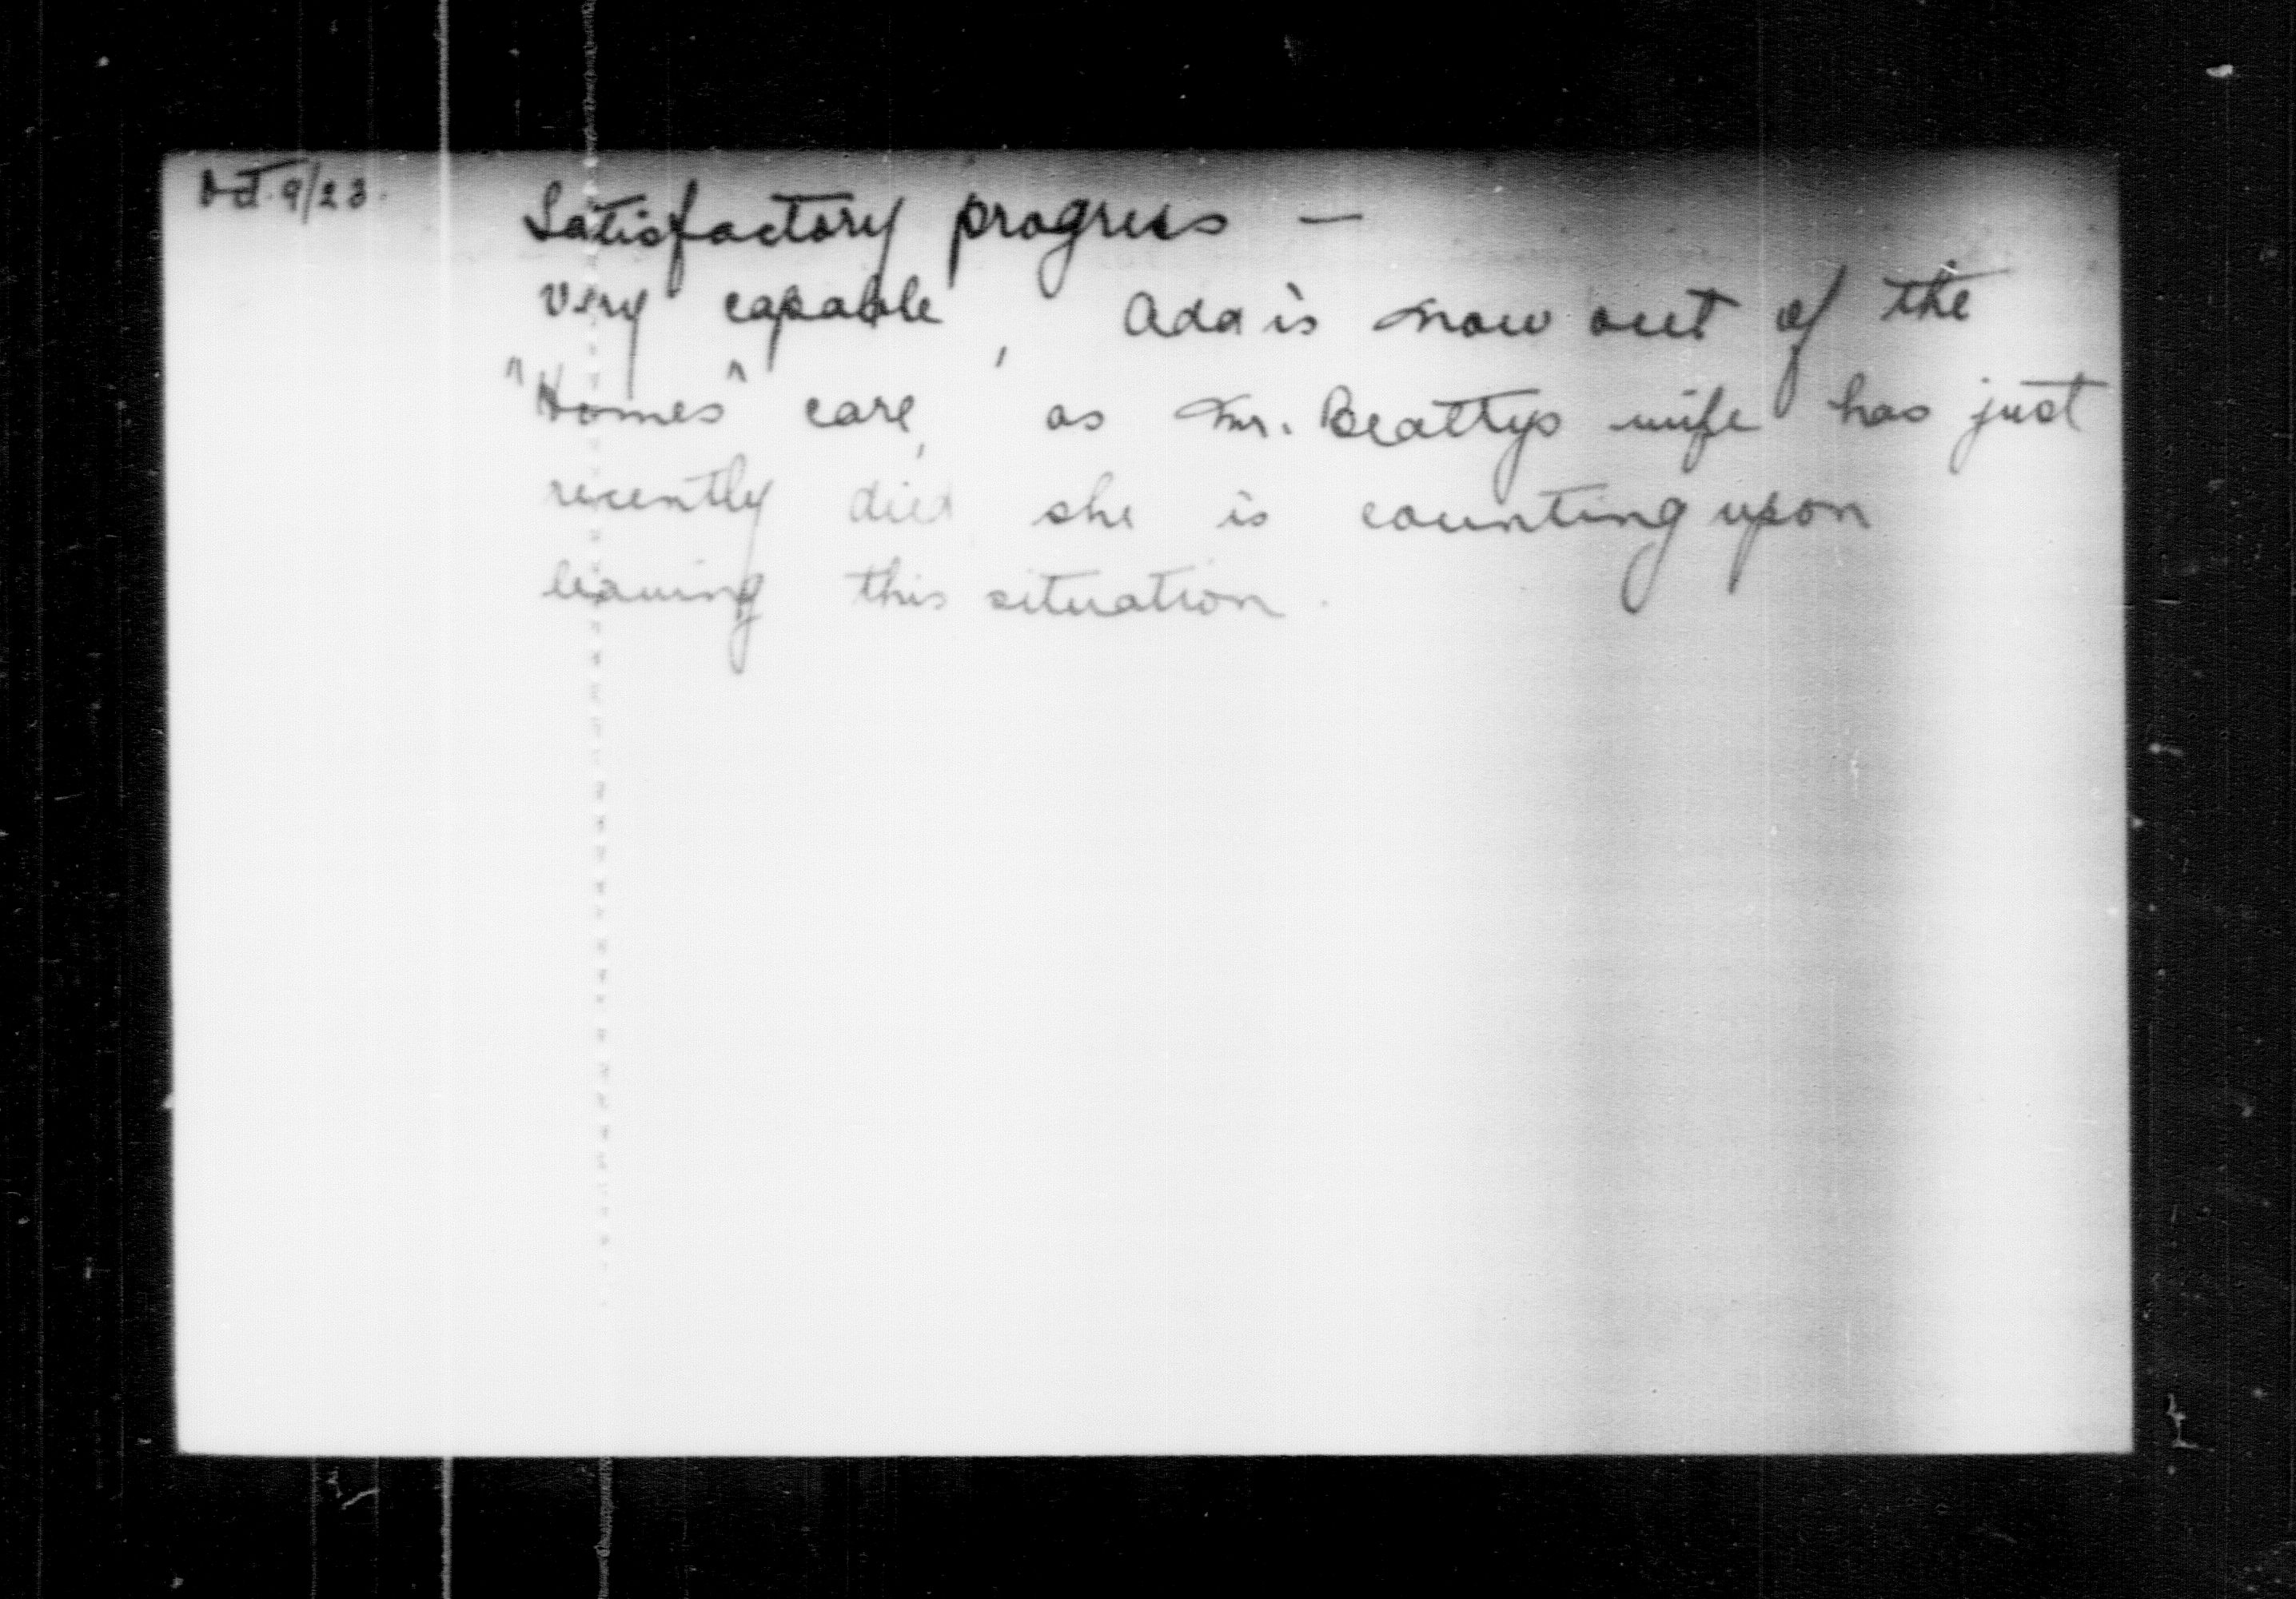 Oct. 9/23. Satisfactory progress —
Very capable, Ada is now out of the
"Homes" care, as Mr. Beattys wife has just
recently died she is counting upon
leaving this situation.